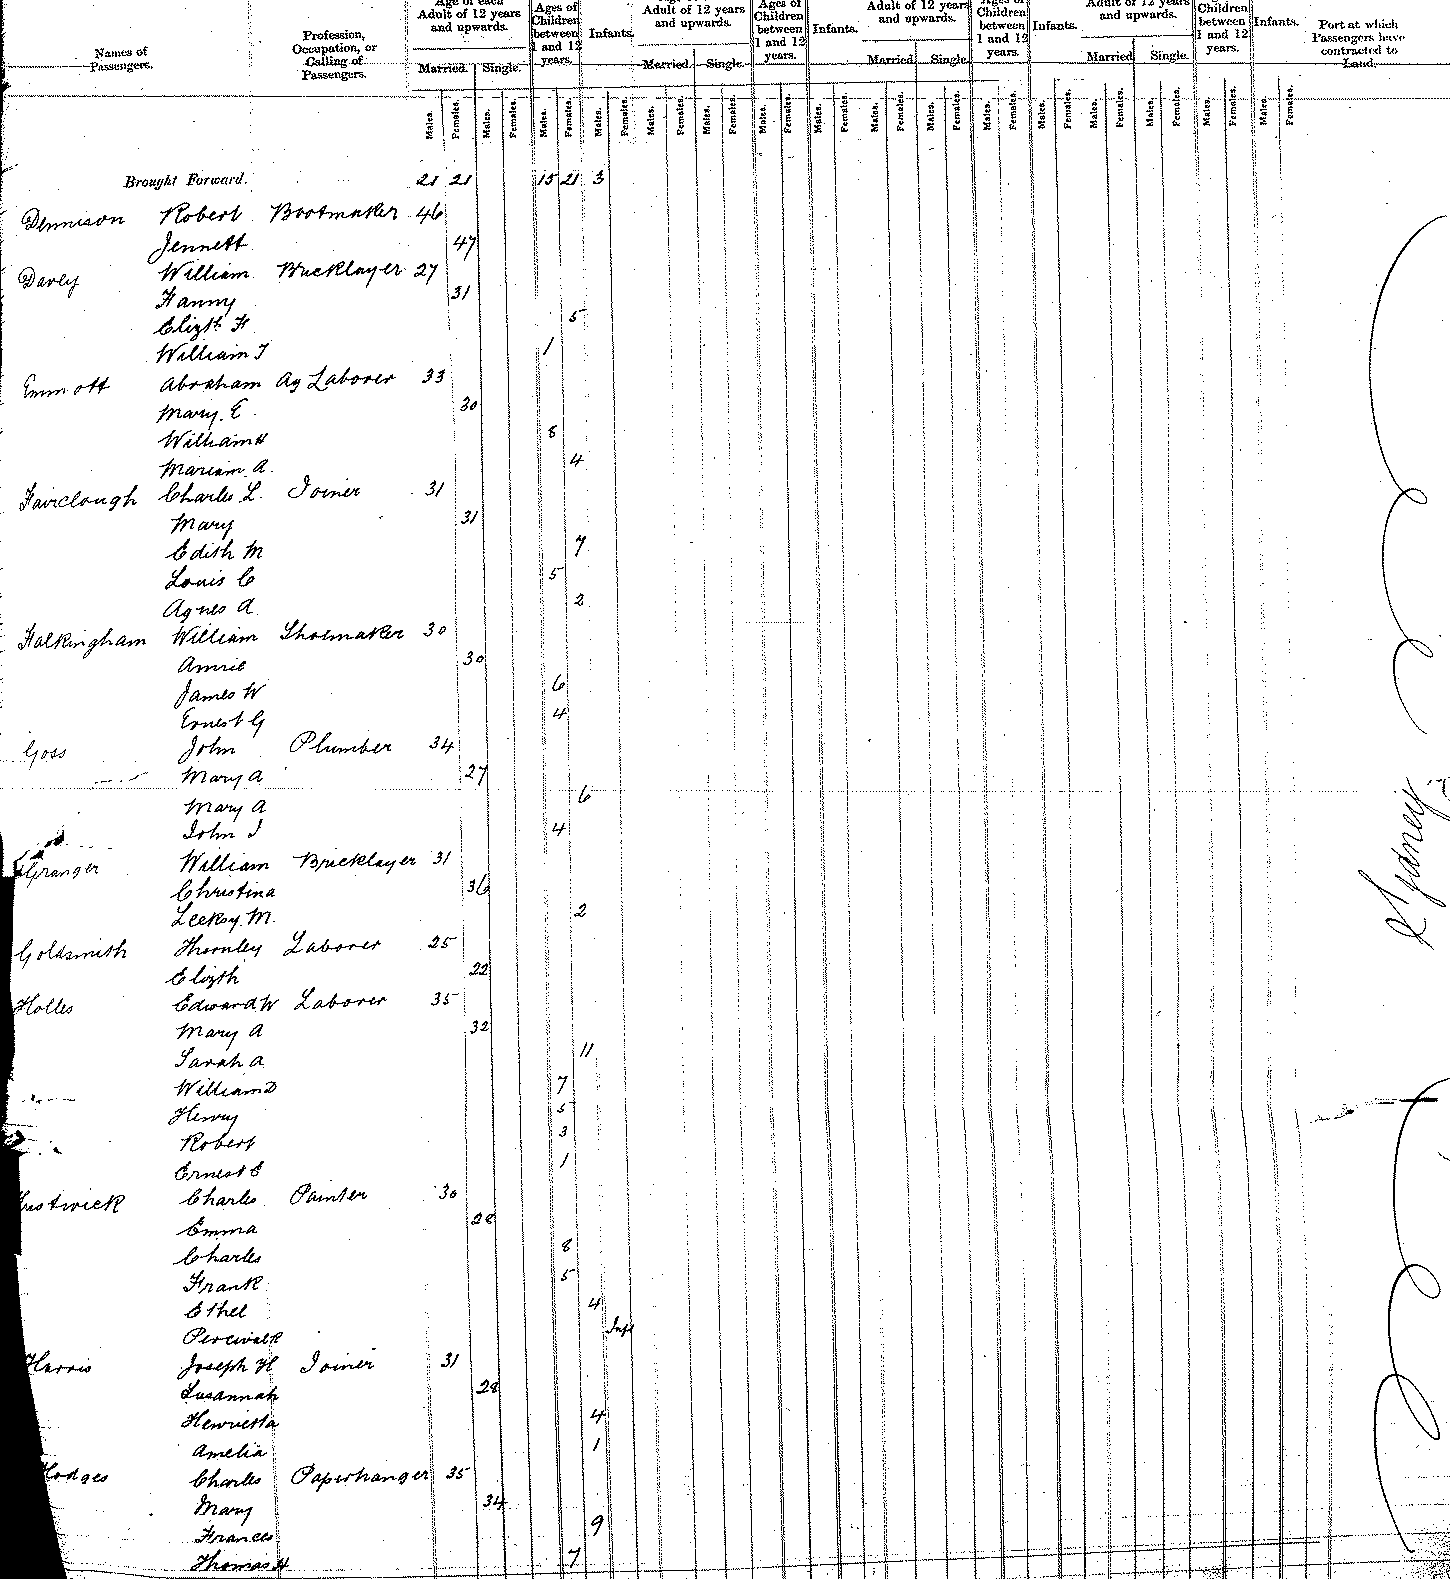 Age of each Adult of 12 years and upwards.
Ages of Children between 1 and 12 years.
Infants.
Adult of 12 years and upwards.
Ages of Children between 1 and 12 years.
Infants.
Adult of 12 years and upwards.
Ages of Children between 1 and 12 years.
Infants.
Adult of 12 years and upwards.
Children between 1 and 12 years.
Infants.
Names of Passengers.
Profession, Occupation, or Calling of Passengers.
Port at which Passengers have contracted to Land.
Married. Single. Married Single. Married Single. Married Single.
Males. Females. Males. Females. Males. Females. Males. Females. Males. Females. Males. Females. Males. Females. Males. Females. Males. Females. Males. Females. Males. Females. Males. Females. Males. Females. Males. Females. Males. Females. Males. Females.
Brought Forward. 21 21 15 21 3
Dennison Robert Bootmaker 46
Jennett 47
Davey William Bricklayer 27
Fanny 31
Elizth F 5
William T 1
Emmott Abraham Ag Laborer 33
Mary. E. 30
William H 8
Mariam A. 4
Fairclough Charles L. Joiner 31
Mary 31
Edith M 7
Louis C 5
Agnes A. 2
Falkingham William Shoemaker 30
Annie 30
James W 6
Ernest G 4
Goss John Plumber 34
Mary A 27
Mary A 6
John J 4
Granger William Bricklayer 31
Christina 36
M. 2
Goldsmith Thornley Laborer 25
Elizth 22
Holles Edward W Laborer 35
Mary A 32
Sarah A 11
William D 7
Henry 5
Robert 3
Ernest E 1
Charles Painter 30
Emma 28
Charles 8
Frank 5
Ethel 4
Inft
Harris Joseph H Joiner 31
Susannah 28
Henrietta 4
Amelia 1
Hodges Charles Paperhanger 35
Mary 34
Frances 9
Thomas H 7
Sydney